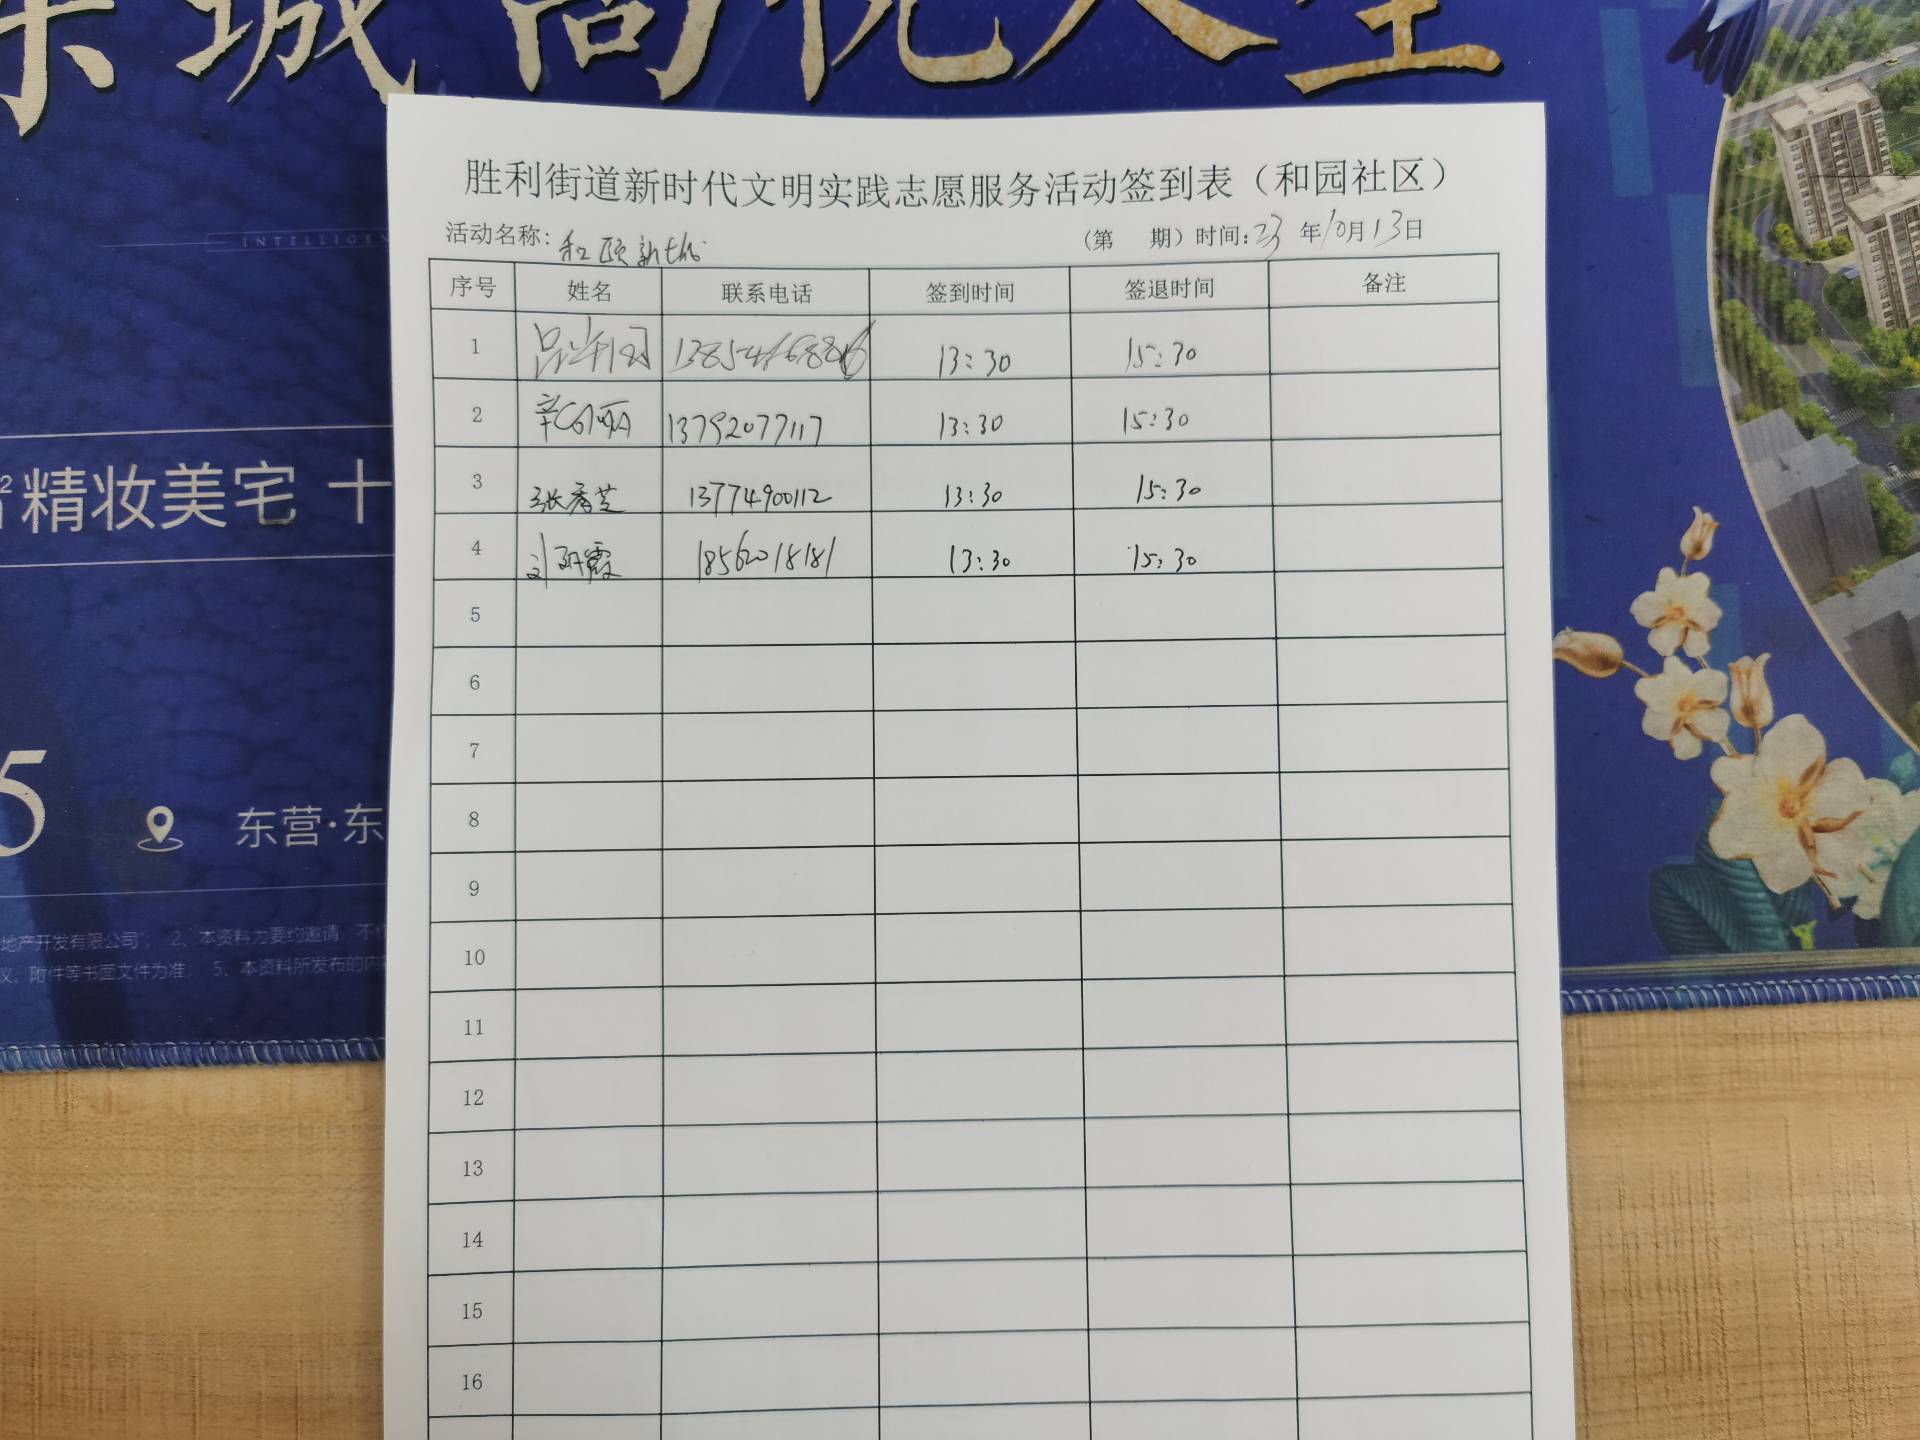 城
INTELLIGEN
精妆美宅 十
5
东营·东
地产开发有限公司"; 2、本资料为要约邀请，不作
议、附件等书面文件为准; 5、本资料所发布的内容
胜利街道新时代文明实践志愿服务活动签到表（和园社区）
活动名称：和颐新城 （第 期）时间：23年10月13日
序号 姓名 联系电话 签到时间 签退时间 备注
1 13:30 15:30
2 13792077117 13:30 15:30
3 张秀芝 13774900112 13:30 15:30
4 刘研霞 18562018181 13:30 15:30
5
6
7
8
9
10
11
12
13
14
15
16